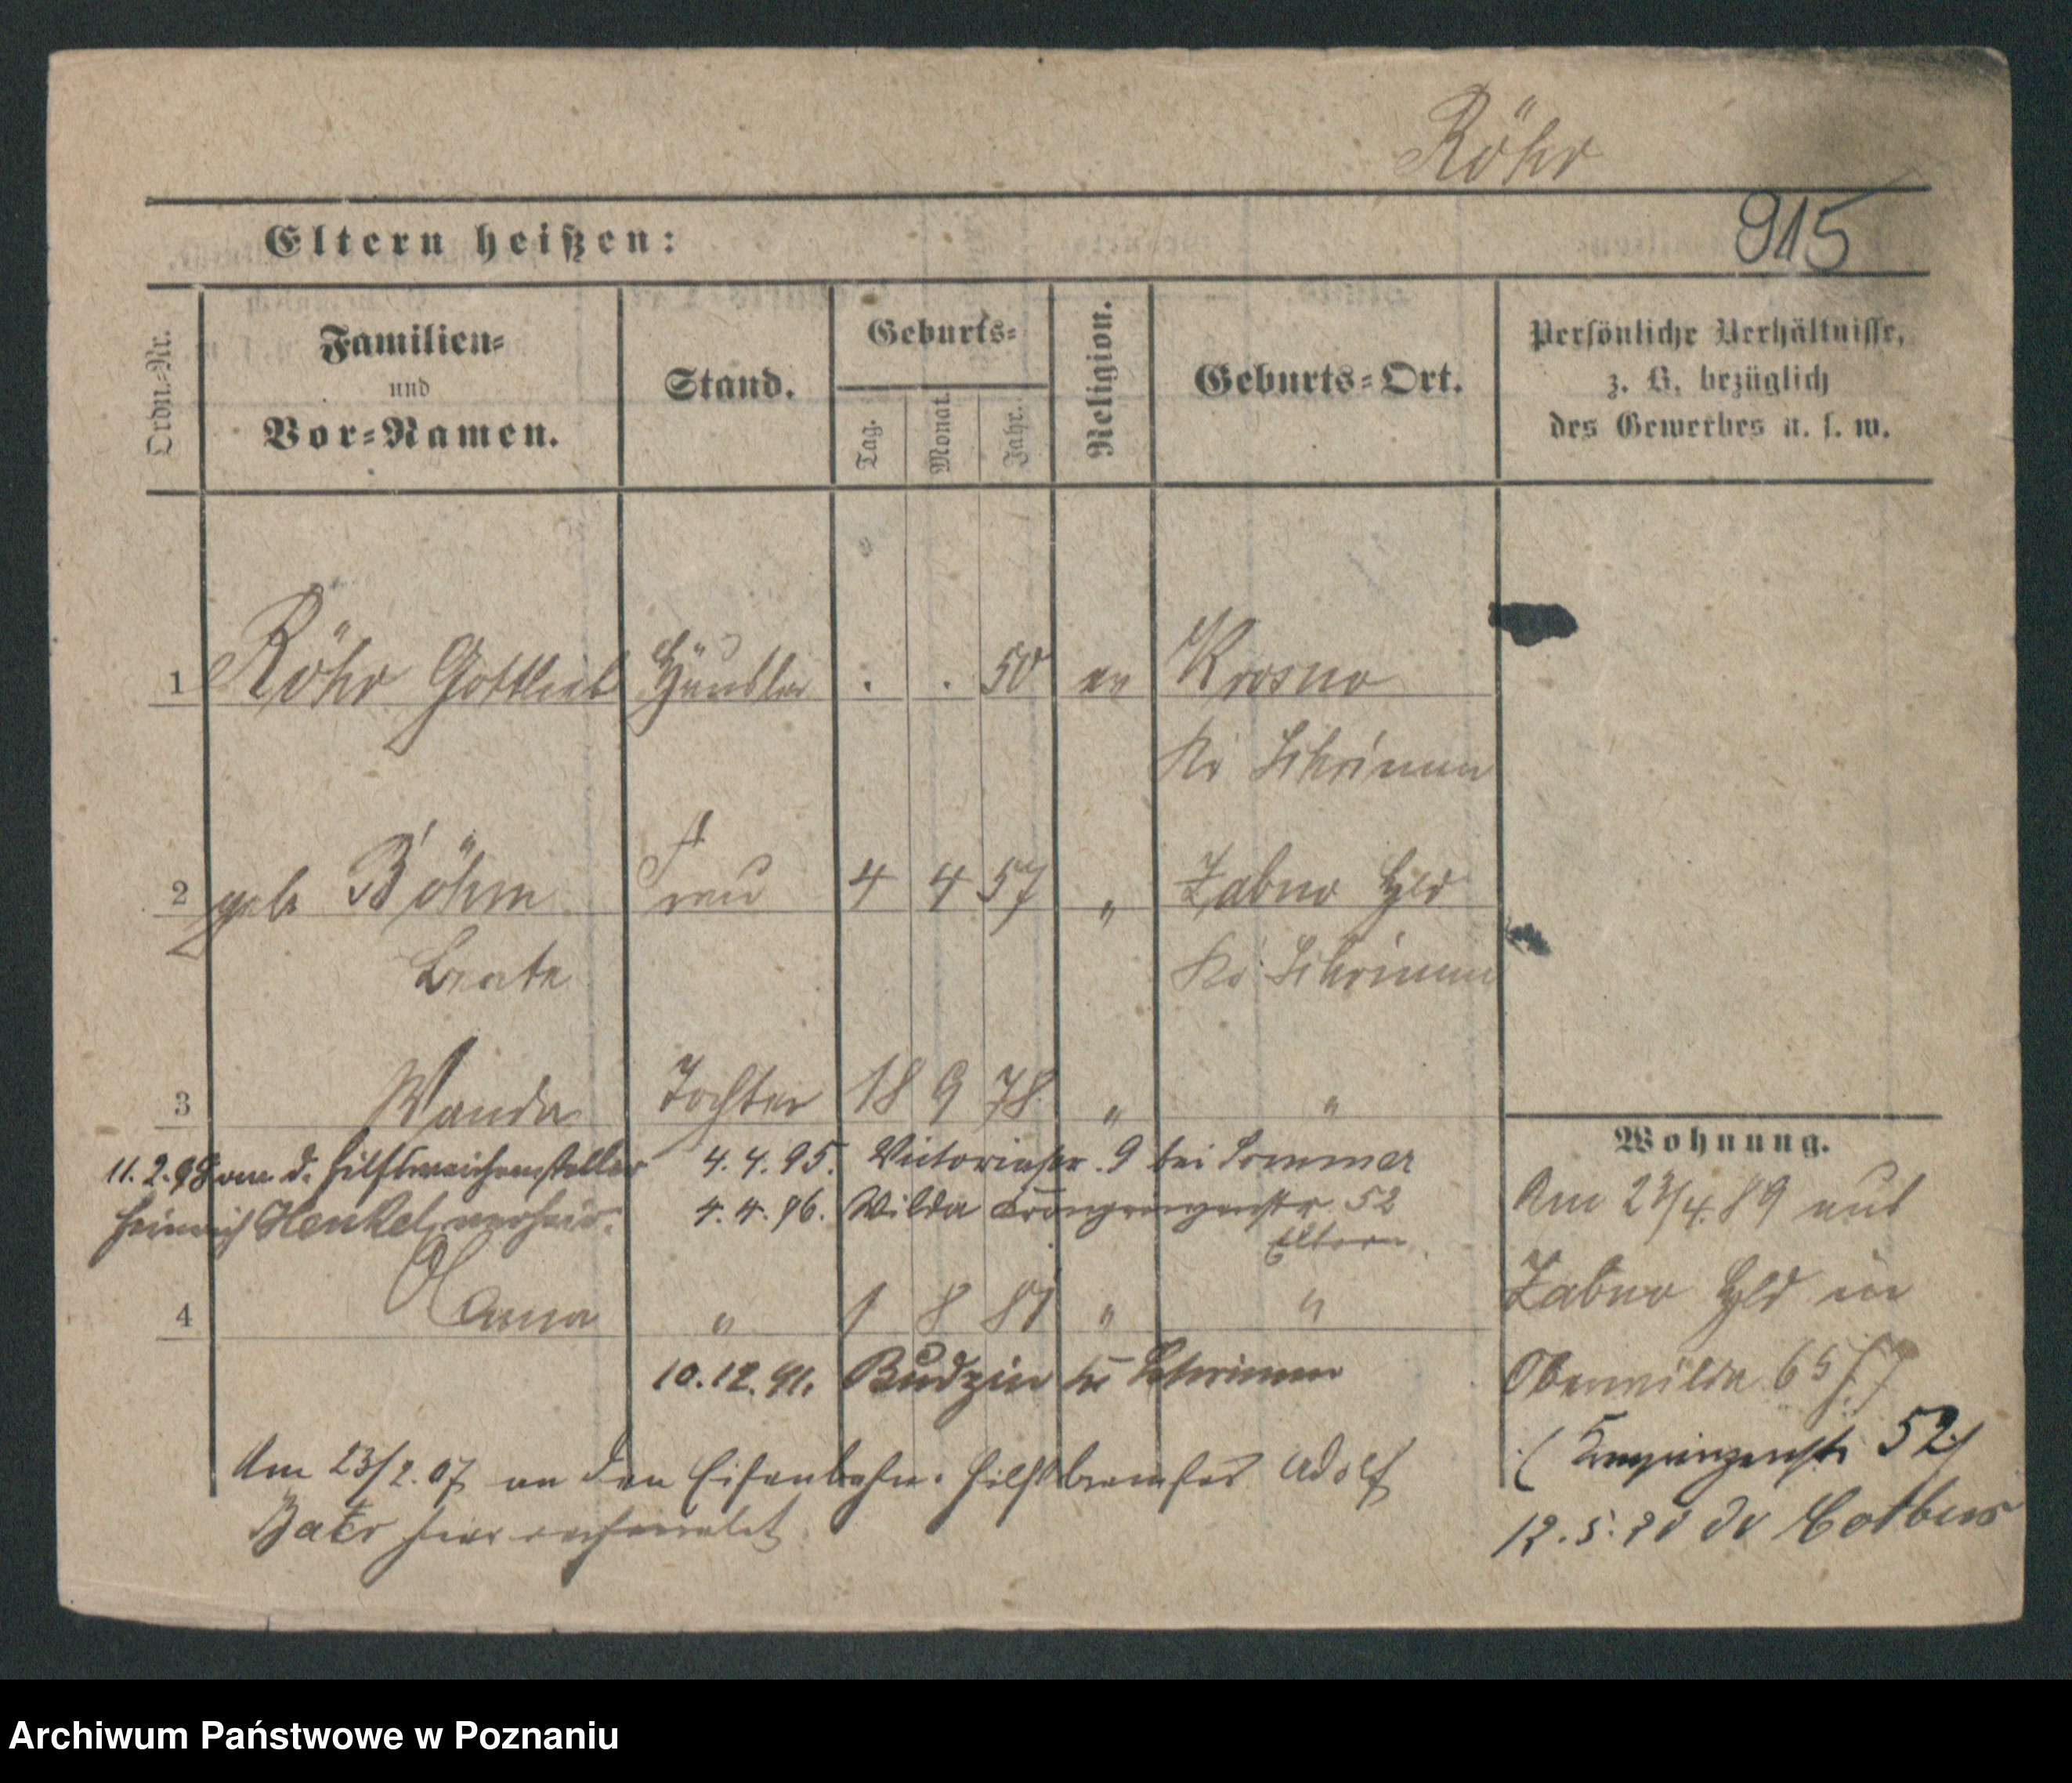 Röhr
915
Eltern heißen:
Ordn.-Nr.
Familien-
und
Vor-Namen.
Stand.
Geburts-
Tag.
Monat.
Jahr.
Religion.
Geburts-Ort.
Persönliche Verhältnisse,
z. B. bezüglich
des Gewerbes u. s. w.
1 Röhr Gottlieb Häusler . . 50 ev Krosno
Kr Schrimm
2 geb Böhm Frau 4 4 57 " Zabno Hld
Beate Kr Schrimm
3 Wanda Tochter 18 9 78 " "
11.2.98 d. Hilfsweichensteller 4.4.95. Victoriastr. 9 bei Sommer
Heinrich Henkel verheir. 4.4.96. Wilda Kronprinzenstr 52
Eltern
4 Anna " 1 8 81 " "
10.12.91. Budzin Kr Schrimm
Am 23/2.07 an den Eisenbahn-Hilfsbremser Adolf
hier verheiratet
Wohnung.
Am 23/4.89 aus
Zabno Hld in
Oberwilda 65
(Kronprinzenstr 52)
12.5. Cotbus
Archiwum Państwowe w Poznaniu